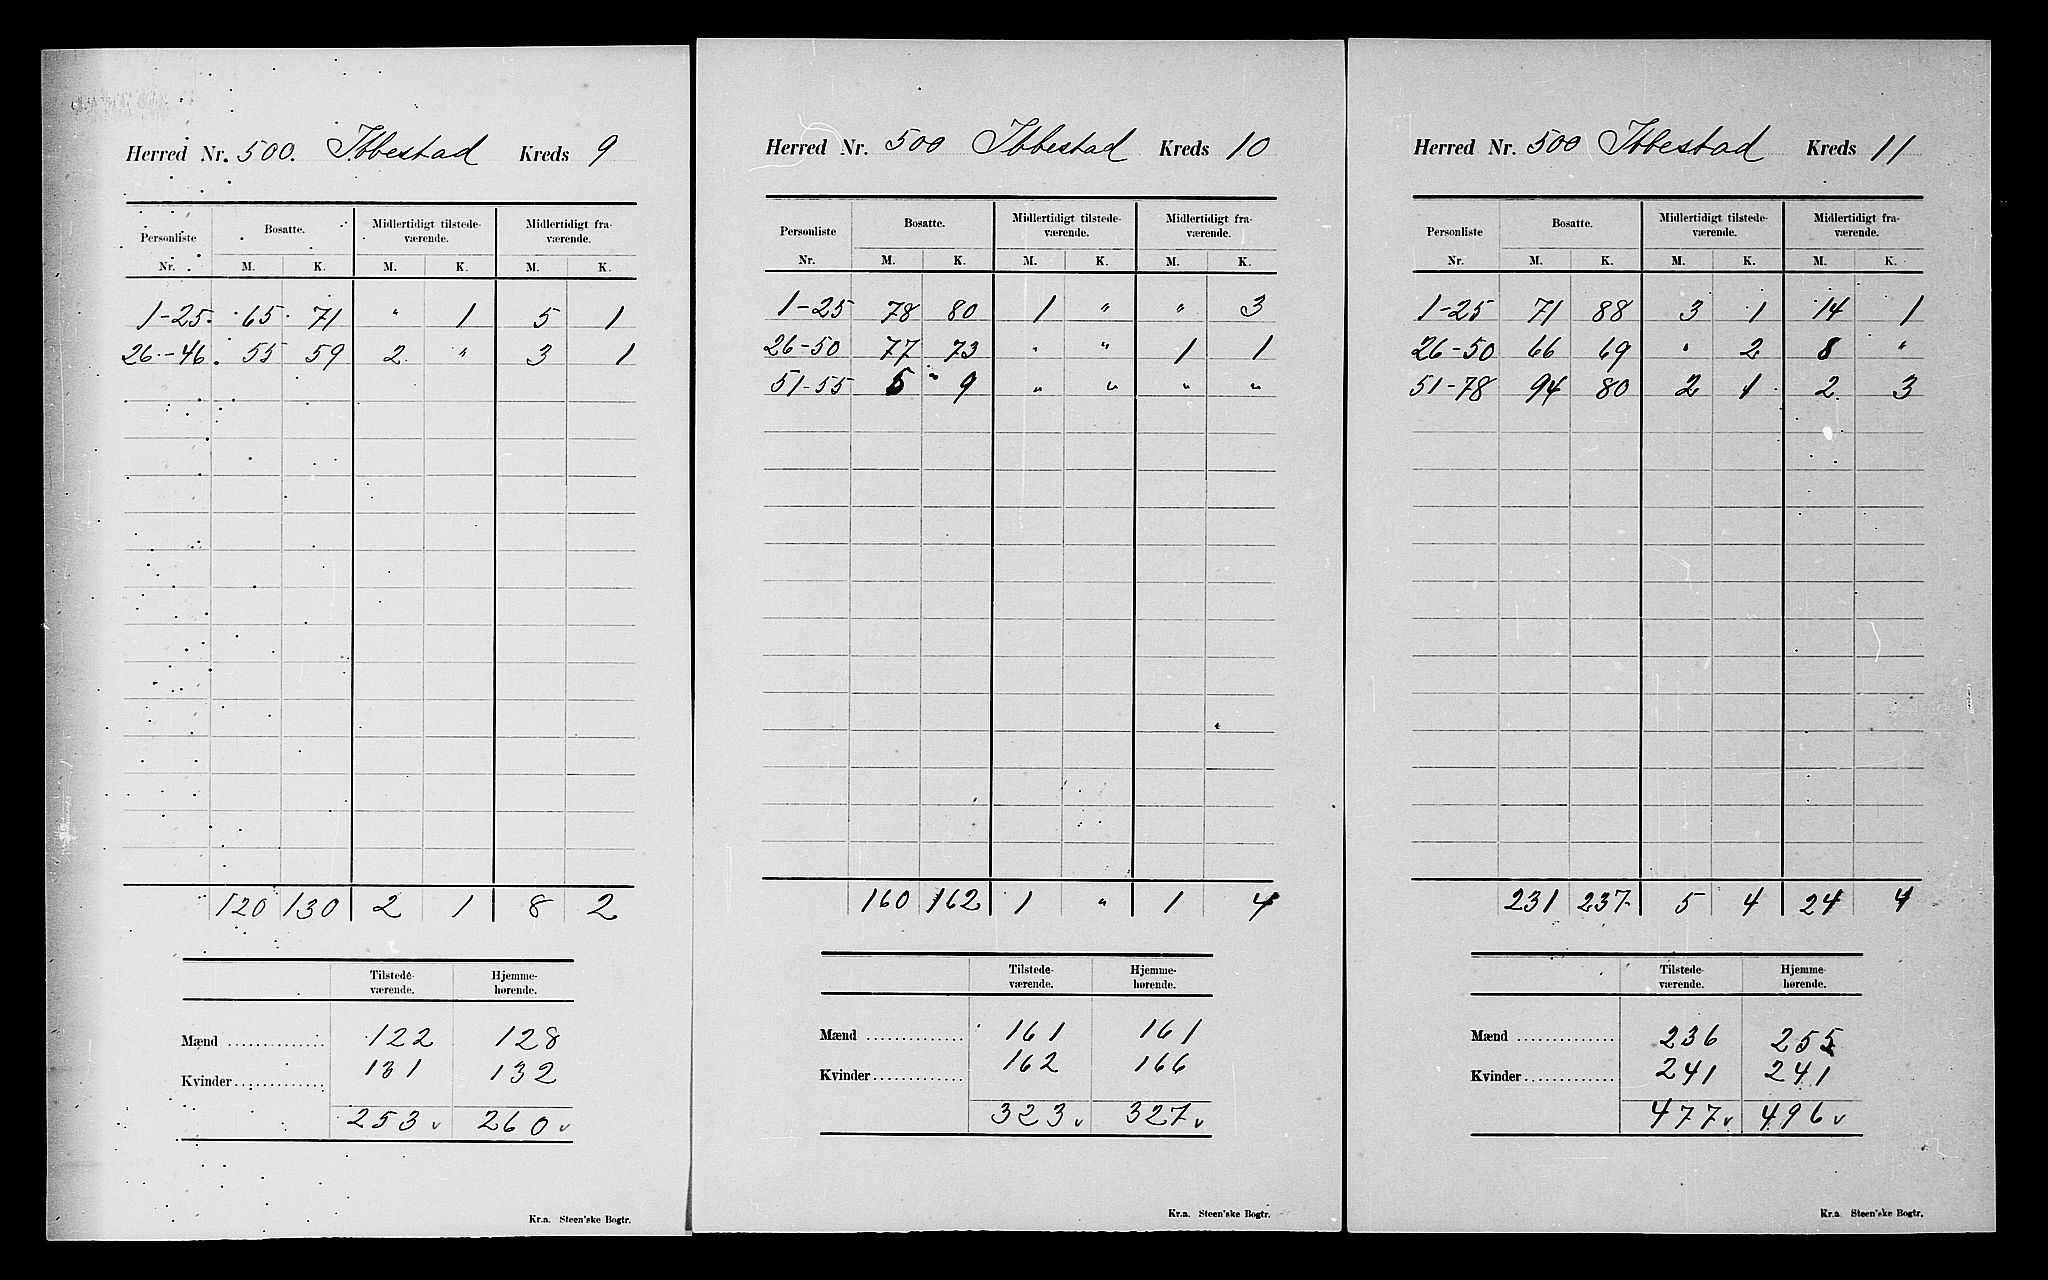 Herred Nr. 500. Ibbestad Kreds 9
Personliste Bosatte. Midlertidigt tilstede- Midlertidigt fra-
værende. værende.
Nr. M. K. M. K. M. K.
1-25. 65. 71 " 1 5 1
26.-46. 55 59 2 " 3 1
120 130 2 1 8 2
Tilstede- Hjemme-
værende. hørende.
Mænd 122 128
Kvinder 131 132
253 v 260 v
Kr.a. Steen'ske Bogtr.
Herred Nr. 500 Ibbestad Kreds 10
Personliste Bosatte. Midlertidigt tilstede- Midlertidigt fra-
værende. værende.
Nr. M. K. M. K. M. K.
1-25 78 80 1 " " 3
26-50 77 73 " " 1 1
51-55 5 9 " " " "
160 162 1 " 1 4
Tilstede- Hjemme-
værende. hørende.
Mænd 161 161
Kvinder 162 166
323 v 327 v
Kr.a. Steen'ske Bogtr.
Herred Nr. 500 Ibbestad Kreds 11
Personliste Bosatte. Midlertidigt tilstede- Midlertidigt fra-
værende. værende.
Nr. M. K. M. K. M. K.
1-25 71 88 3 1 14 1
26-50 66 69 " 2 8 "
51-78 94 80 2 1 2 3
231 237 5 4 24 4
Tilstede- Hjemme-
værende. hørende.
Mænd 236 255
Kvinder 241 241
477 v 496 v
Kr.a. Steen'ske Bogtr.